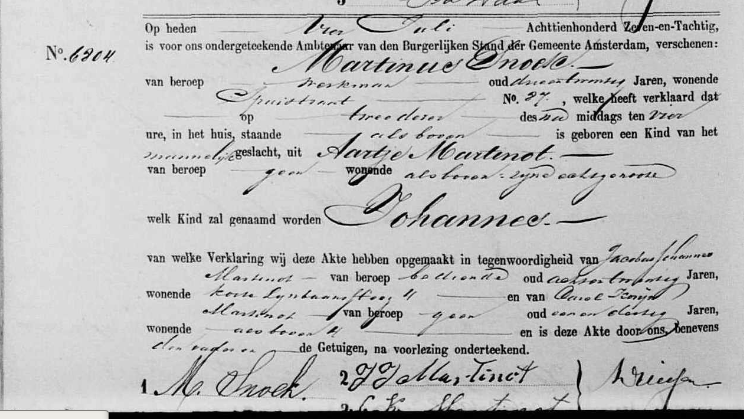 Op heden vier Juli Achttienhonderd Zeven-en-Tachtig,
No. 6304 is voor ons ondergeteekende Ambtenaar van den Burgerlijken Stand der Gemeente Amsterdam, verschenen:
Martinus Snoek. —
van beroep werkman oud Jaren, wonende
Spuistraat No. 27, welke heeft verklaard dat
op tweeden des na middags ten vier
ure, in het huis, staande als boven is geboren een Kind van het
mannelijk geslacht, uit Aartje Martinot. —
van beroep — geen — wonende als boven zijne echtgenoote
welk Kind zal genaamd worden Johannes. —
van welke Verklaring wij deze Akte hebben opgemaakt in tegenwoordigheid van Jacobus Johannes
Martinot — van beroep bediende oud Jaren,
wonende korte Lijnbaansteeg en van Carel
Martinot — van beroep — geen oud een en dertig Jaren,
wonende — als boven en is deze Akte door ons, benevens
den vader en de Getuigen, na voorlezing onderteekend.
1 M. Snoek. 2 J J Martinot